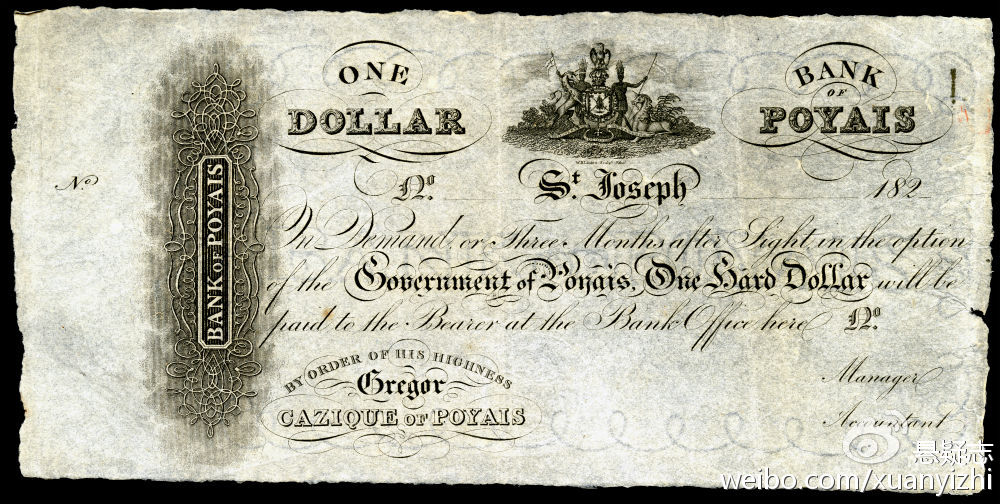 ONE
DOLLAR
BANK
OF
POYAIS
BANK OF POYAIS
No
No.
St. Joseph
182
On Demand, or Three Months after Sight, in the option
of the Government of Poyais, One Hard Dollar will be
paid to the Bearer at the Bank Office here No.
BY ORDER OF HIS HIGHNESS
Gregor
CAZIQUE OF POYAIS
Manager
Accountant
悬疑志
weibo.com/xuanyizhi